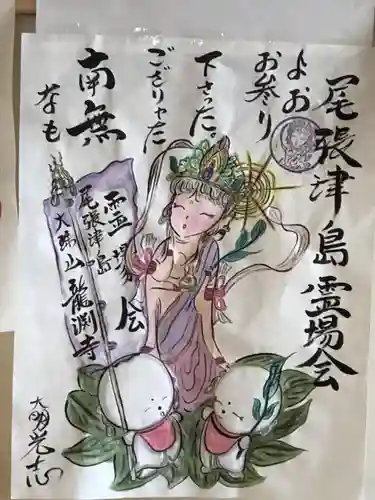 尾張津島霊場会
よお
お参り
下さった。
ござりゃた
南無
なも
霊場会
尾張津島
大漸山龍渕寺